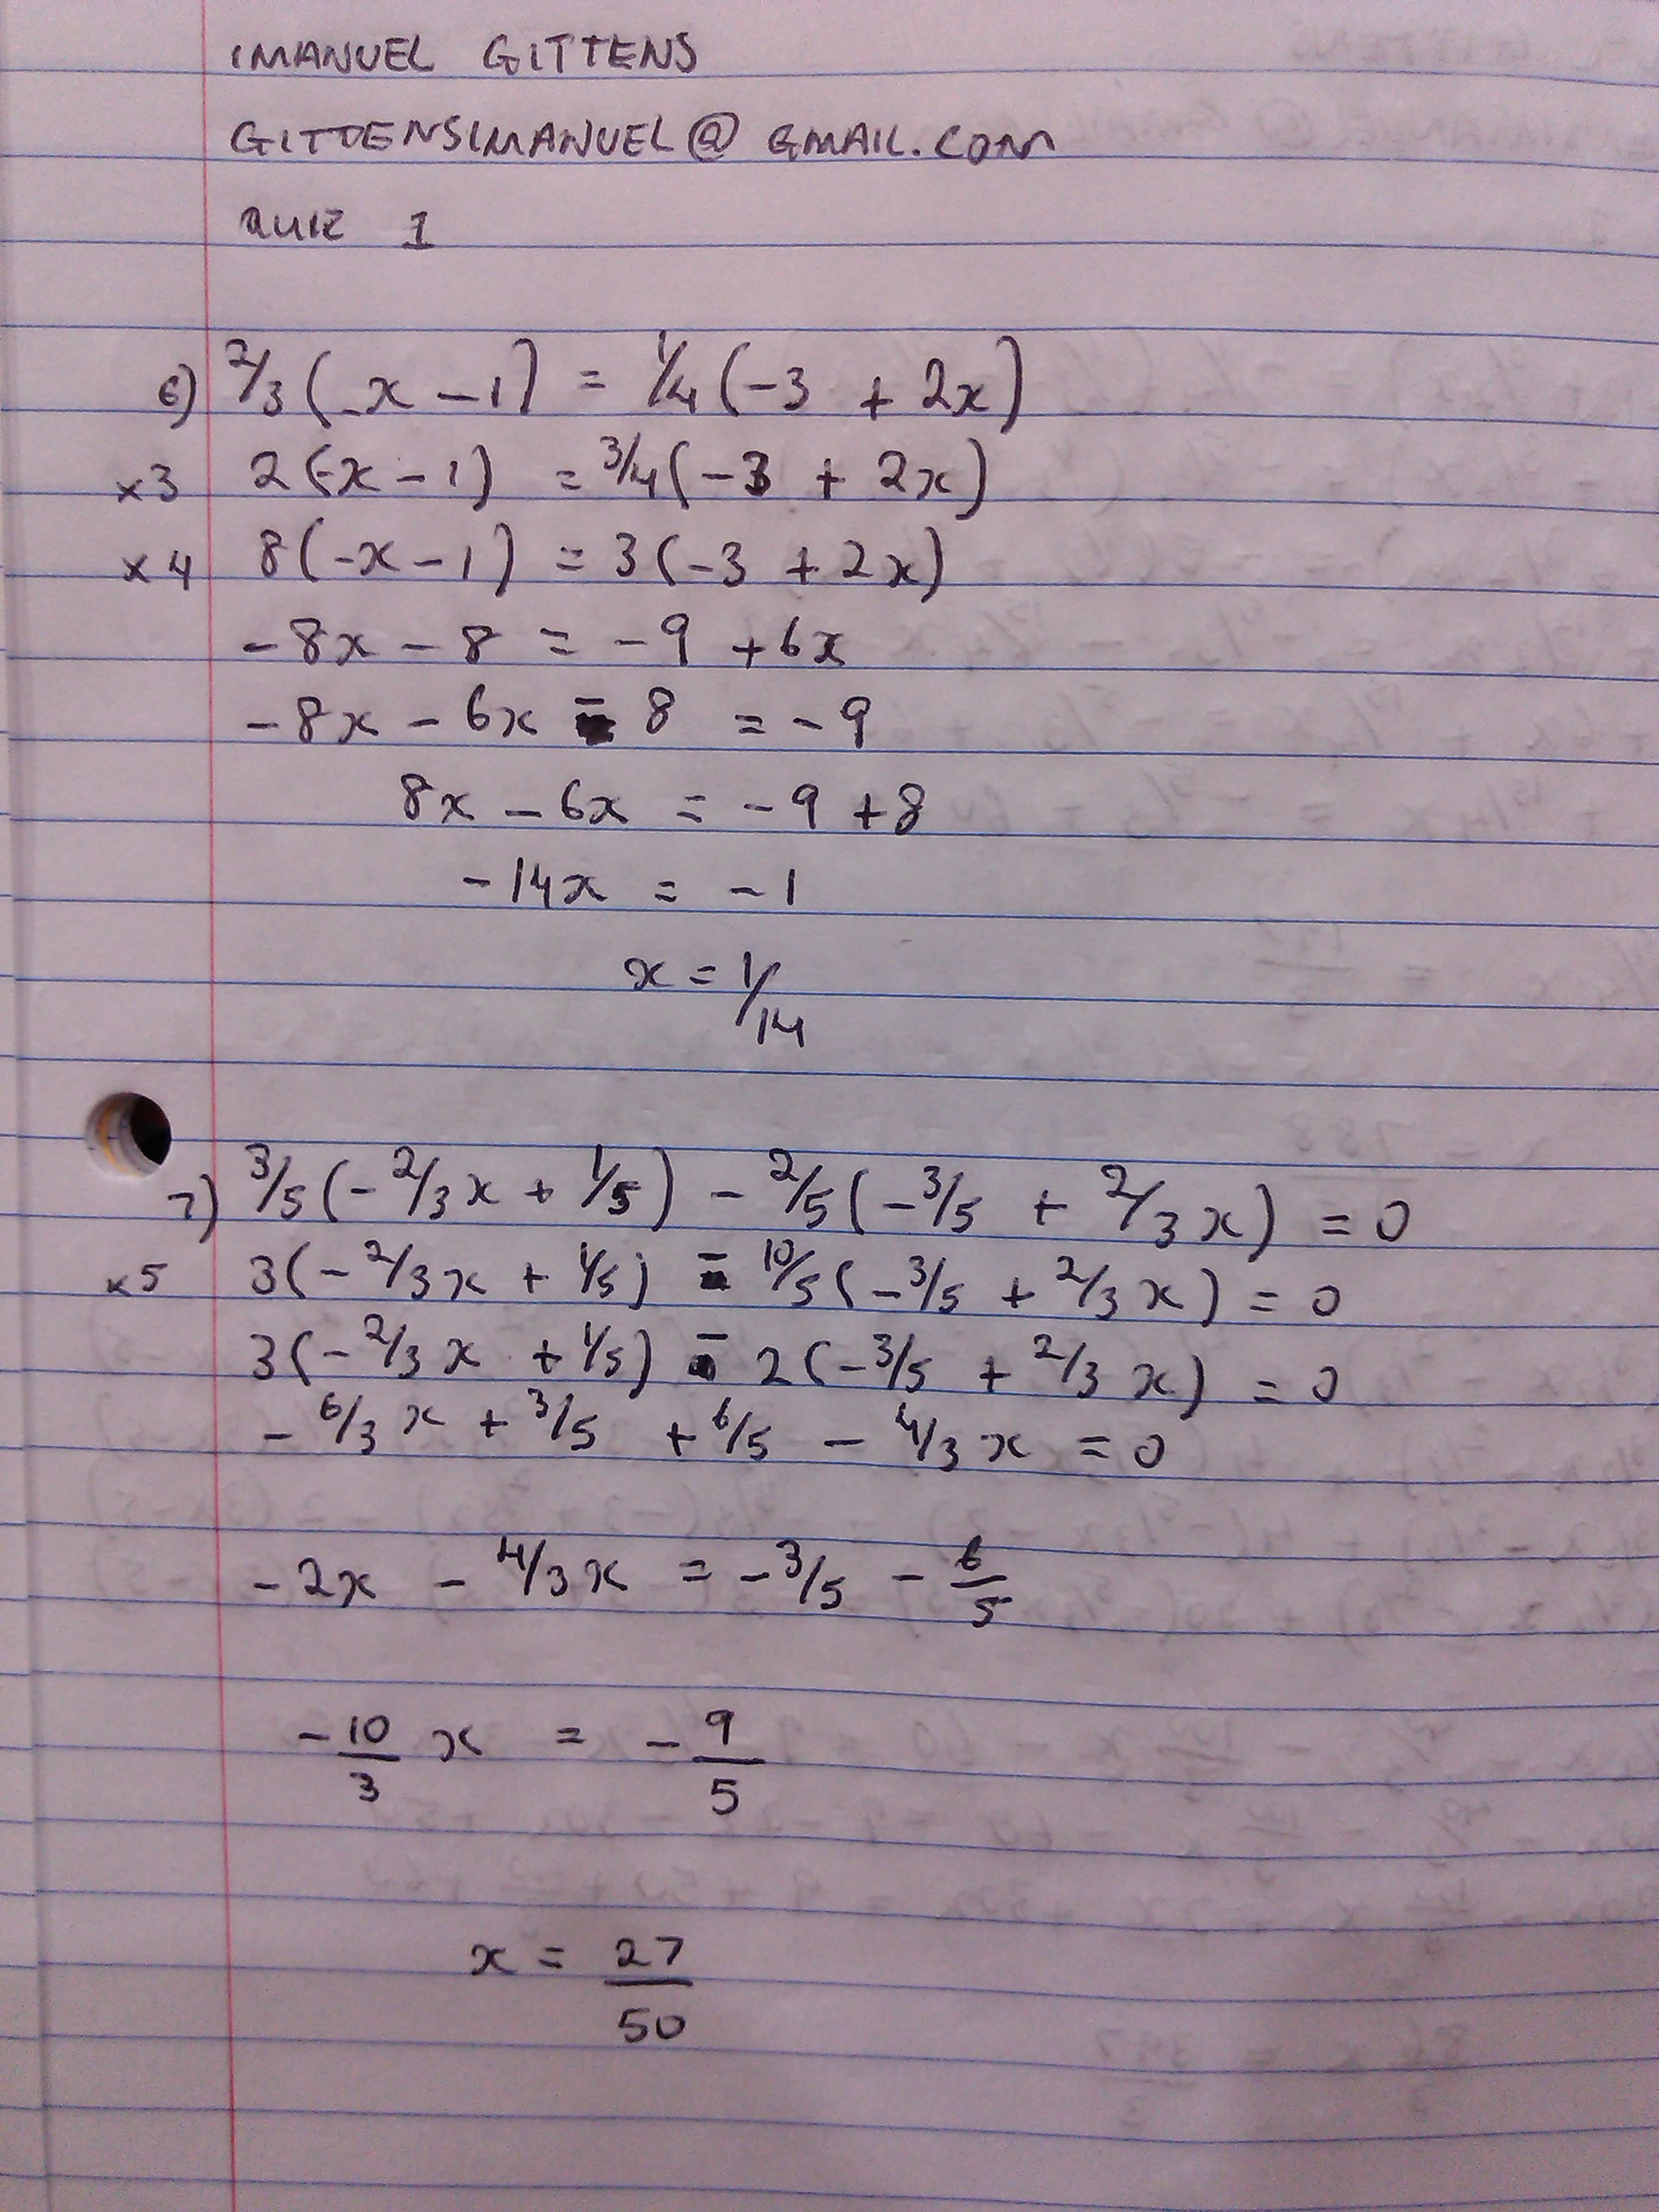 IMANUEL GITTENS
GITTENSIMANUEL@GMAIL.COM
QUIZ 1
6) 2/3(-x-1) = 1/4(-3 + 2x)
x3 2(-x-1) = 3/4(-3 + 2x)
x4 8(-x-1) = 3(-3 + 2x)
-8x - 8 = -9 +6x
-8x - 6x - 8 = -9
8x - 6x = -9 +8
-14x = -1
x = 1/14
7) 3/5(-2/3x + 1/5) - 2/5(-3/5 + 2/3x) = 0
x5 3(-2/3x + 1/5) - 10/5(-3/5 + 2/3x) = 0
3(-2/3x + 1/5) - 2(-3/5 + 2/3x) = 0
-6/3x + 3/5 + 6/5 - 4/3x = 0
-2x - 4/3x = -3/5 - 6/5
-10/3 x = -9/5
x = 27/50